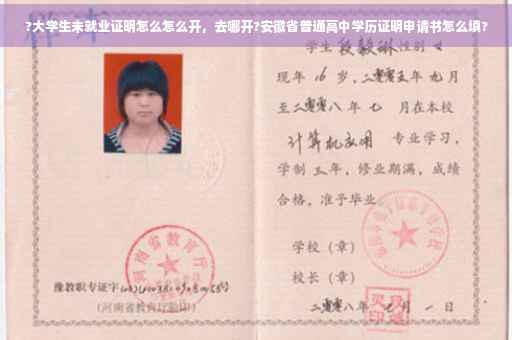 ?大学生未就业证明怎么怎么开，去哪开?安徽省普通高中学历证明申请书怎么填?
学生段毅琳性别女
现年16岁，二零零五年九月
至二零零八年七月在本校
计算机应用 专业学习，
学制三年，修业期满，成绩
合格，准予毕业
学校（章）
河南省教育厅
校长（章）
豫教职专证字
(河南省教育厅验印)
二零零八年七月一日